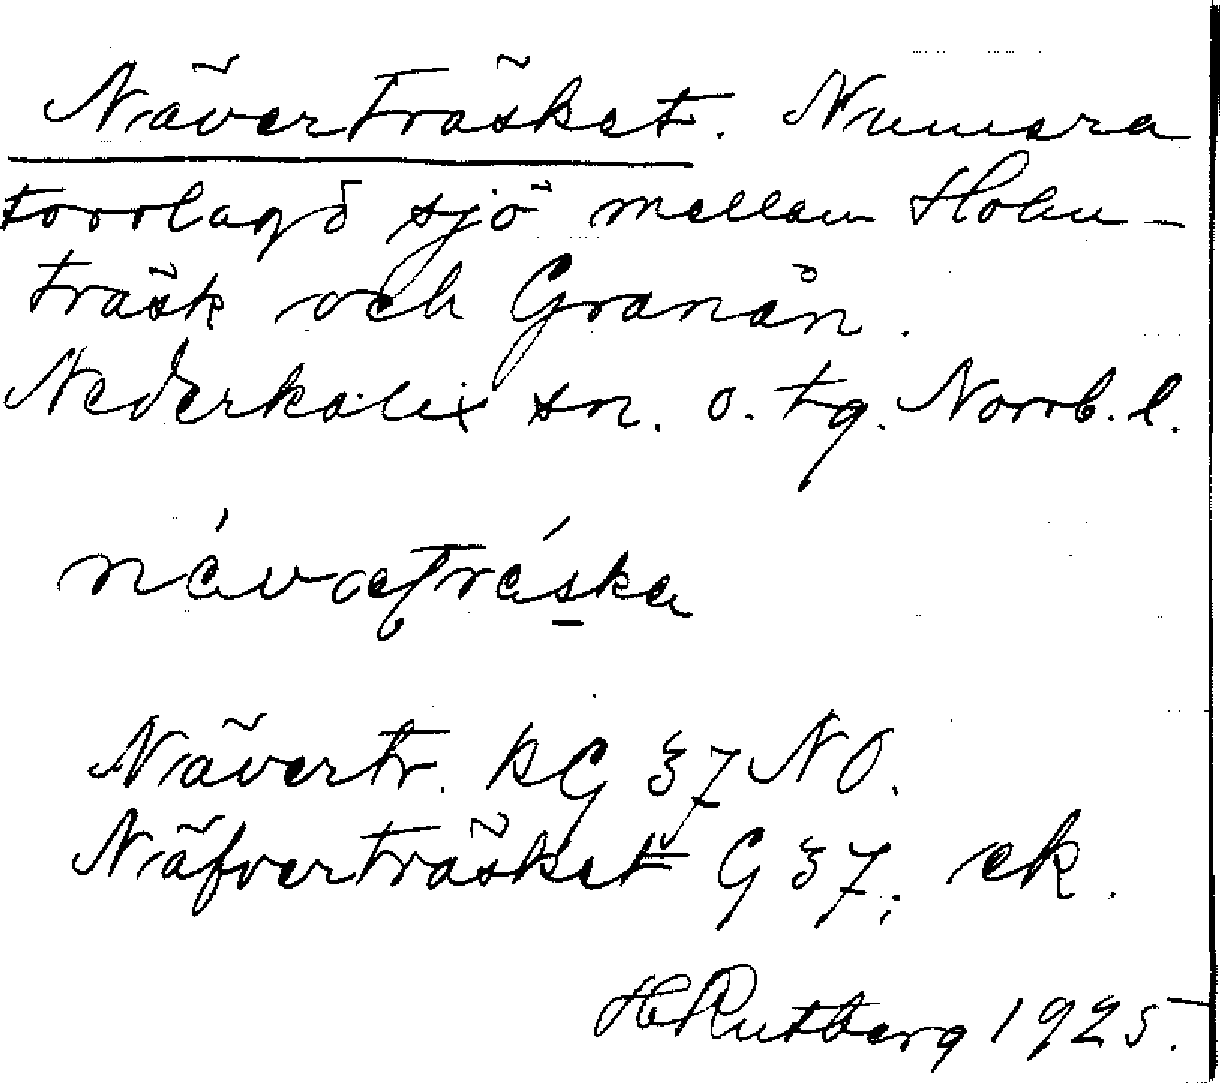 Näverträsket. Numera
torrlagd sjö mellan Holm-
träsk och Granån.
Nederkalix sn. o. tg. Norrb. l.
Nävertr. kG 37 NO.
Näfverträsket G 37; ek.
H Rutberg 1925.